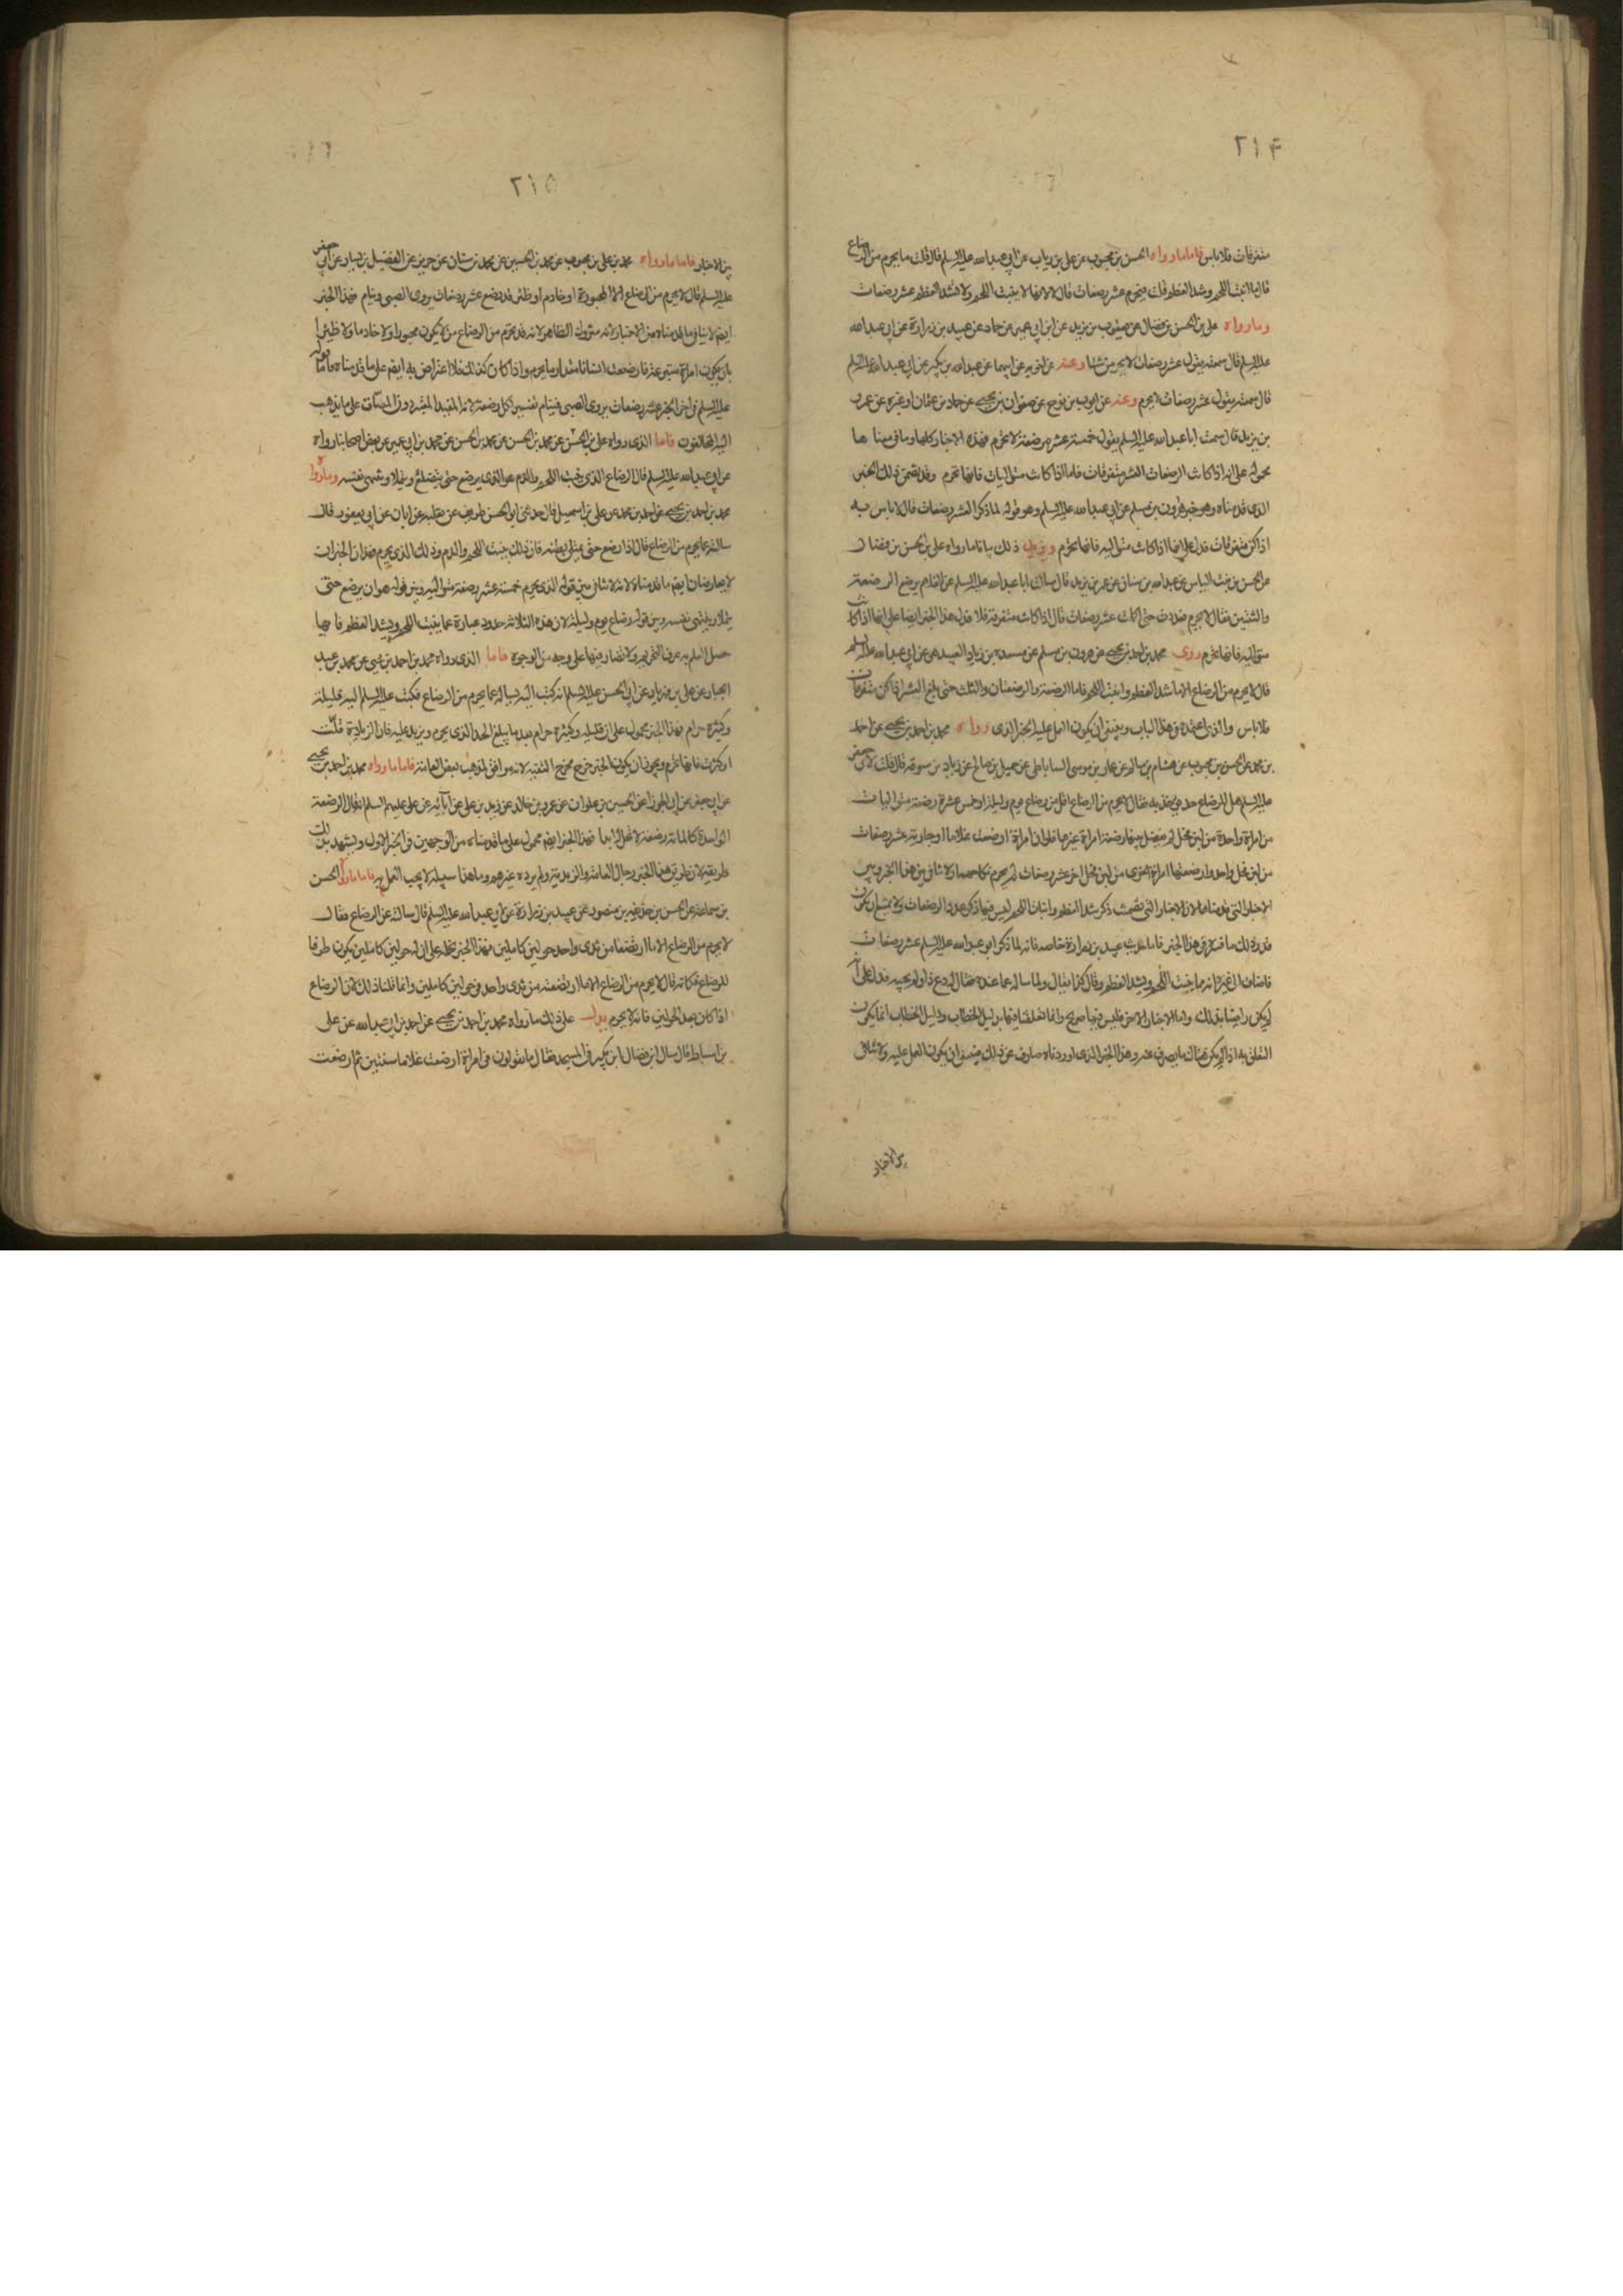 ٢١٤
متفرقات فلا باس فاما ما رواه الحسن بن محبوب عن علي بن رياب عن ابي عبد الله عليه السلم قال قلت ما يحرم من الرضاع
قال ما انبت اللحم وشد العظم قلت فيحرم عشر رضعات قال لا لانها لا ينبت اللحم ولا تشد العظم عشر رضعات
وما رواه علي بن الحسن بن فضال عن يعقوب بن يزيد عن ابن ابي عمير عن حماد عن عبيد بن زرارة عن ابي عبد الله
عليه السلم قال سمعته يقول عشر رضعات لا يحرمن شيئا وعنه عن اخويه عن ابيهما عن عبد الله بن بكير عن ابي عبد الله عليه السلم
قال سمعته يقول عشر رضعات لا يحرم وعنه عن ايوب بن نوح عن صفوان بن يحيى عن حماد بن عثمان او غيره عن عمر
بن يزيد قال سمعت ابا عبد الله عليه السلم يقول خمسة عشر رضعة لا تحرم فهذه الاخبار كلها وما في معناها
محمولة على انه اذا كانت الرضعات العشر متفرقات فاما اذا كانت متواليات فانها تحرم وقد تضمن ذلك الخبر
الذي قدمناه وهو خبر هرون بن مسلم عن ابي عبد الله عليه السلم وهو قوله لما ذكر العشر رضعات قال لا باس به
اذا كن متفرقات فدل على انها اذا كانت متوالية فانها تحرم ويزيد ذلك بيانا ما رواه علي بن الحسن بن فضال
عن الحسن بن بنت الياس عن عبد الله بن سنان عن عمر بن يزيد قال سالت ابا عبد الله عليه السلم عن الغلام يرضع الرضعة
والثنتين فقال لا يحرم فعددت حتى اكملت عشر رضعات قال اذا كانت متفرقة فلا فدل هذا الخبر ايضا على انها اذا كانت
متوالية فانها تحرم روى محمد بن احمد بن يحيى عن هرون بن مسلم عن مسعدة بن زياد العبدي عن ابي عبد الله عليه السلم
قال لا يحرم من الرضاع الا ما شد العظم وانبت اللحم فاما الرضعة والرضعتان والثلث حتى بلغ العشر اذا كن متفرقات
فلا باس والذي اعتمده في هذا الباب وينبغي ان يكون العمل عليه الخبر الذي رواه محمد بن احمد بن يحيى عن احمد
بن محمد عن الحسن بن محبوب عن هشام بن سالم عن عمار بن موسى الساباطي عن جميل بن صالح عن زياد بن سوقة قال قلت لابي جعفر
عليه السلم هل للرضاع حد يوخذ به فقال لا يحرم من الرضاع اقل من رضاع يوم وليلة او خمس عشرة رضعة متواليات
من امراة واحدة من لبن فحل لم يفصل بينها رضعة امراة غيرها فلو ان امراة ارضعت غلاما او جارية عشر رضعات
من لبن فحل واحد وارضعتها امراة اخرى من لبن فحل اخر عشر رضعات لم يحرم نكاحهما ولا تنافي بين هذا الخبر وبين
الاخبار التي قدمناها لان الاخبار التي تضمنت ذكر شد العظم وانبات اللحم ليس فيها ذكر عدد الرضعات ولا يمتنع ان يكون
قدر ذلك ما فسره في هذا الخبر فاما حديث عبيد بن زرارة خاصة فانه لما ذكر ابو عبد الله عليه السلم عشر رضعات
فاضاف الى غيره انه مما ينبت اللحم ويشد العظم وقال كذا يقال ولما ساله عما عنده فقال له دع ذا ولم يجبه فدل على انه
لم يكن راضيا بذلك واما الاخبار الاخر فليس فيها صريح وانما تعلقنا فيها بدليل الخطاب ودليل الخطاب انما يكون
التعلق به اذا لم يكن هناك ما يصرف عنه وهذا الخبر الذي اوردناه صارف عن ذلك فينبغي ان يكون العمل عليه ولا تنافي
بين الاخبار
٢١٥
بين الاخبار فاما ما رواه محمد بن علي بن محبوب عن محمد بن الحسين عن محمد بن سنان عن حريز عن الفضيل بن يسار عن ابي جعفر
عليه السلم قال لا يحرم من الرضاع الا المجبورة او خادم او ظئر قد رضع عشر رضعات يروى الصبي وينام فهذا الخبر
ايضا لا ينافي ما قدمناه من الاخبار لانه متروك الظاهر لانه قد يحرم من الرضاع من لا يكون مجبورا ولا خادما ولا ظئرا
بان يكون امراة متبرعة فارضعت انسانا مقدار ما يحرم واذا كان كذلك فلا اعتراض به ايضا على ما قدمناه فاما قوله
عليه السلم في اخر الخبر عشر رضعات يروى الصبي فينام تفسير لكل رضعة لانها المقيد المعتبر دون المصات على ما يذهب
اليه المخالفون فاما الذي رواه علي بن الحسن عن محمد بن الحسن عن محمد بن الحسن عن محمد بن ابي عمير عن بعض اصحابنا رواه
عن ابي عبد الله عليه السلم قال الرضاع الذي ينبت اللحم والدم هو الذي يرضع حتى يتضلع ويتملا وينتهي نفسه وما رواه
محمد بن احمد بن يحيى عن احمد بن محمد عن علي بن اسمعيل قال حدثني ابي الحسن ظريف عن ثعلبة عن ابان عن ابن ابي يعفور قال
سالته عما يحرم من الرضاع قال اذا رضع حتى يمتلئ بطنه فان ذلك ينبت اللحم والدم وذلك الذي يحرم فهذان الخبران
لا يعارضان ايضا ما قدمناه لانه لا تنافي بين قوله الذي يحرم خمسة عشر رضعة متوالية وبين قوله هو ان يرضع حتى
يتملا وينتهي نفسه وبين قوله رضاع يوم وليلة لان هذه الثلاثة حدود عبارة عما ينبت اللحم ويشد العظم فايها
حصل العلم به عرف التحريم ولا تضاد فيها على وجه من الوجوه فاما الذي رواه محمد بن احمد بن يحيى عن محمد بن عبد
الجبار عن علي بن مهزيار عن ابي الحسن عليه السلم انه كتب اليه يساله عما يحرم من الرضاع فكتب عليه السلم اليه قليله
وكثيره حرام فهذا الخبر محمول على ان قليله وكثيره حرام بعد ما يبلغ الحد الذي يحرم ويزيد عليه فان الزيادة قلت
او كثرت فانها تحرم ويجوز ان يكون الخبر خرج مخرج التقية لانه موافق لمذهب بعض العامة فاما ما رواه محمد بن احمد بن يحيى
عن ابي جعفر عن ابي الجوزا عن الحسين بن علوان عن عمرو بن خالد عن زيد بن علي عن ابآئه عن علي عليهم السلم انه قال الرضعة
الواحدة كالماية رضعة لا تحل له ابدا فهذا الخبر ايضا محمول على ما قدمناه من الوجهين في الخبر الاول ويشهد بذلك
طريقه لان طريق هذا الخبر رجال العامة والزيدية ولم يرده غيرهم وما هذا سبيله لا يجب العمل به فاما ما رواه الحسن
بن سماعة عن الحسن بن حذيفة بن منصور عن عبيد بن زرارة عن ابي عبد الله عليه السلم قال سالته عن الرضاع فقال
لا يحرم من الرضاع الا ما ارتضعا من ثدي واحد حولين كاملين فهذا الخبر نحمله على ان الحولين كاملين يكون ظرفا
للرضاع فكانه قال لا يحرم من الرضاع الا ما ارتضعته من ثدي واحد في حولين كاملين وانما قلنا ذلك لان الرضاع
اذا كان بعد الحولين فانه لا يحرم يدل على ذلك ما رواه محمد بن احمد بن يحيى عن احمد بن ابي عبد الله عن علي
بن اسباط قال سال ابن فضال ابن بكير في المسجد فقال ما تقولون في امراة ارضعت غلاما سنتين ثم ارضعت